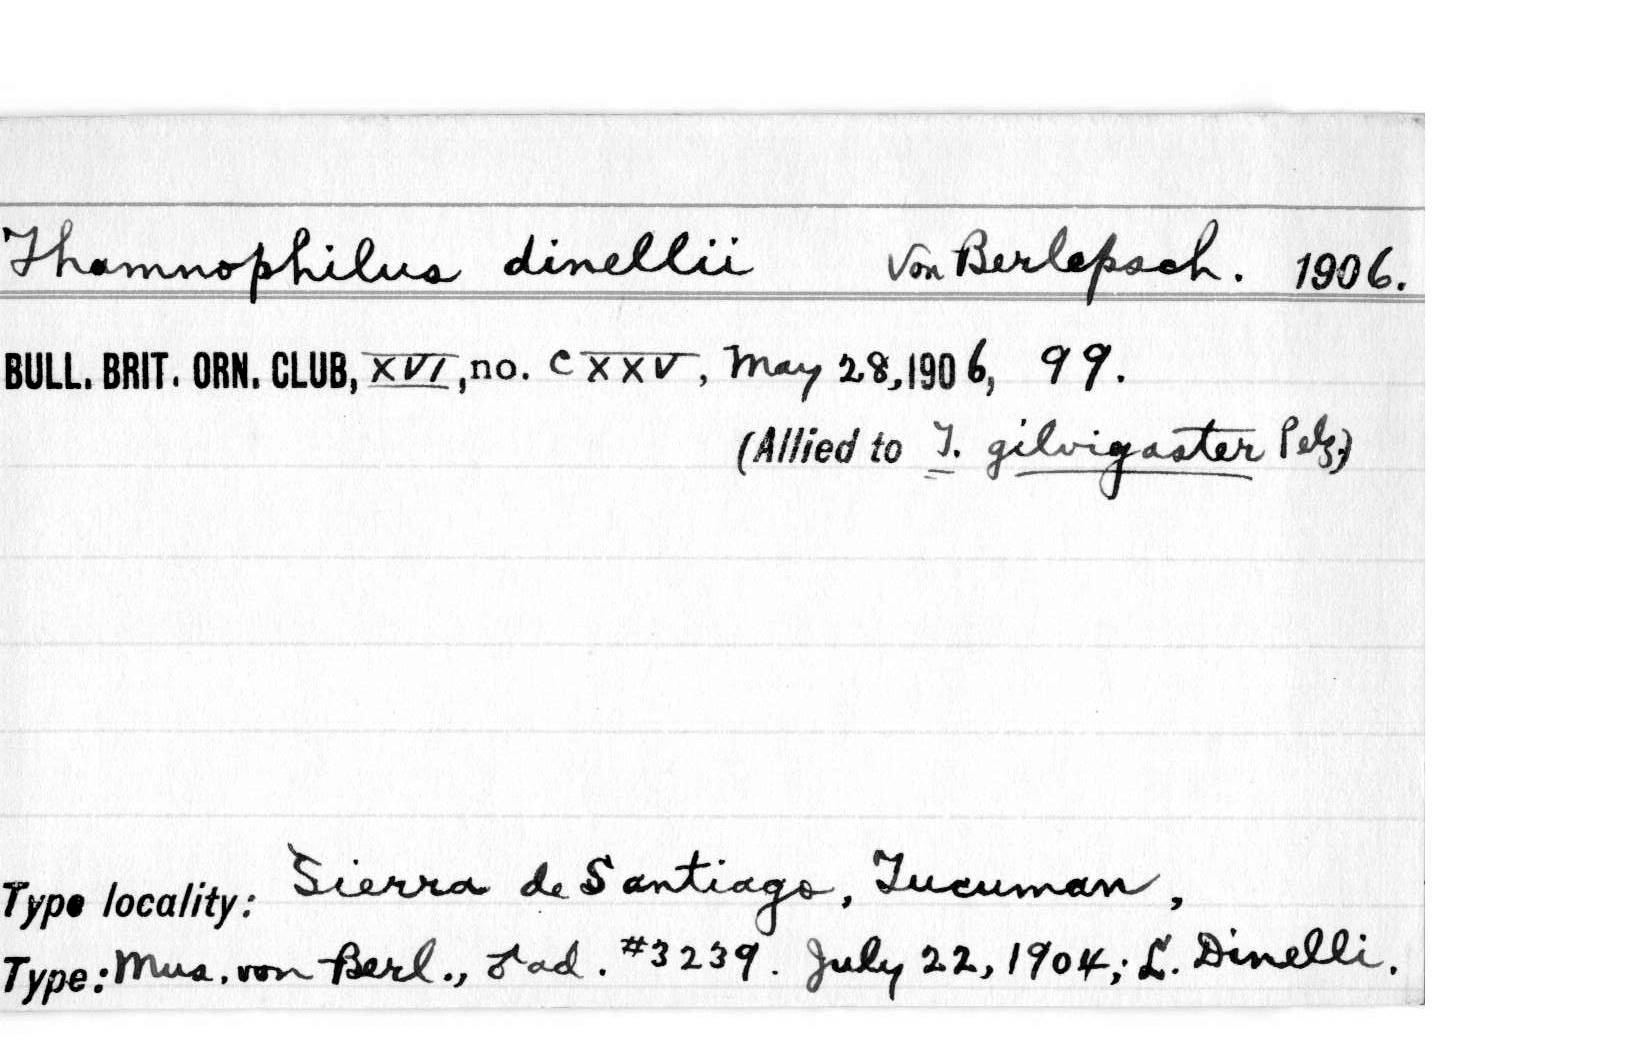 Thamnophilus dinellii von Berlepsch. 1906.
BULL. BRIT. ORN. CLUB, XVI, no. CXXV, May 28, 1906, 99.
(Allied to T. gilvigaster Pelz.)
Type locality: Sierra de Santiago, Tucuman,
Type: Mus. von Berl., ♂ ad. #3239. July 22, 1904; L. Dinelli.